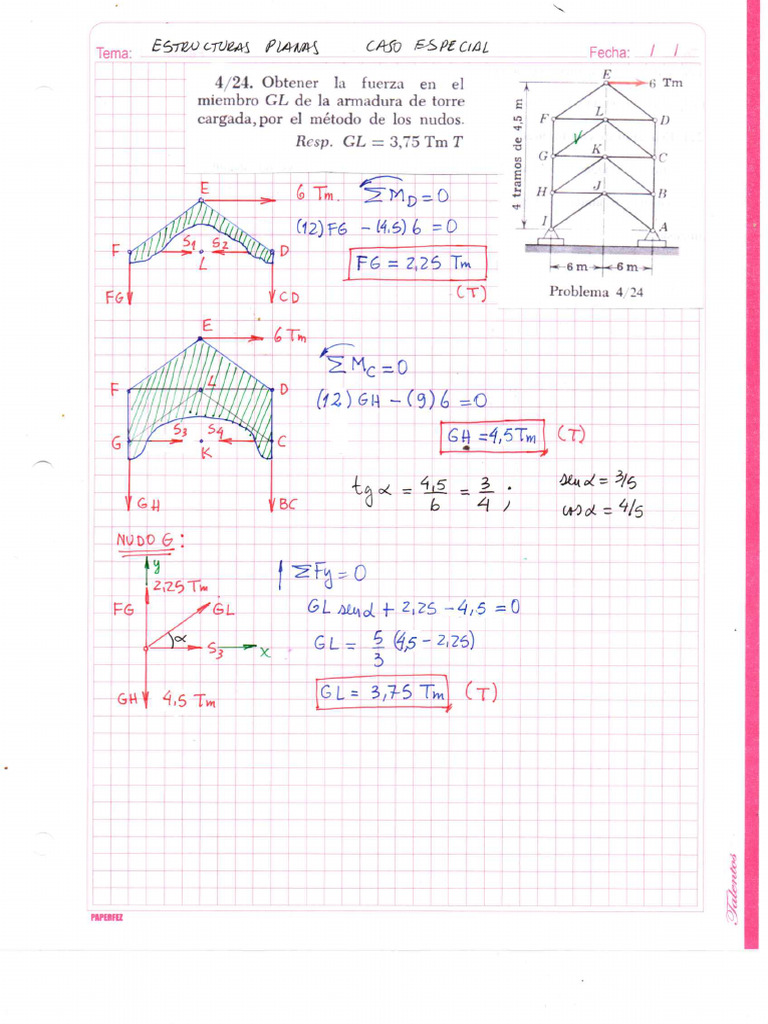 Tema: ESTRUCTURAS PLANAS CASO ESPECIAL Fecha: / /
4/24. Obtener la fuerza en el
miembro GL de la armadura de torre
cargada, por el método de los nudos.
Resp. GL = 3,75 Tm T
E
6 Tm
F
L
D
G
K
C
H
J
B
I
A
4 tramos de 4,5 m
6 m
6 m
Problema 4/24
E
6 Tm.
F
S1
S2
D
L
FG
CD
ΣM_D = 0
(12)FG - (4,5) 6 = 0
FG = 2,25 Tm
(T)
E
6 Tm
F
L
D
G
S3
S4
C
K
GH
BC
ΣM_C = 0
(12) GH - (9) 6 = 0
GH = 4,5 Tm (T)
tg α = 4,5/6 = 3/4 ;
sen α = 3/5
cos α = 4/5
NUDO G:
y
2,25 Tm.
FG
GL
α
S3
x
GH 4,5 Tm
ΣFy = 0
GL sen α + 2,25 - 4,5 = 0
GL = 5/3 (4,5 - 2,25)
GL = 3,75 Tm (T)
PAPERFEZ
Talentos